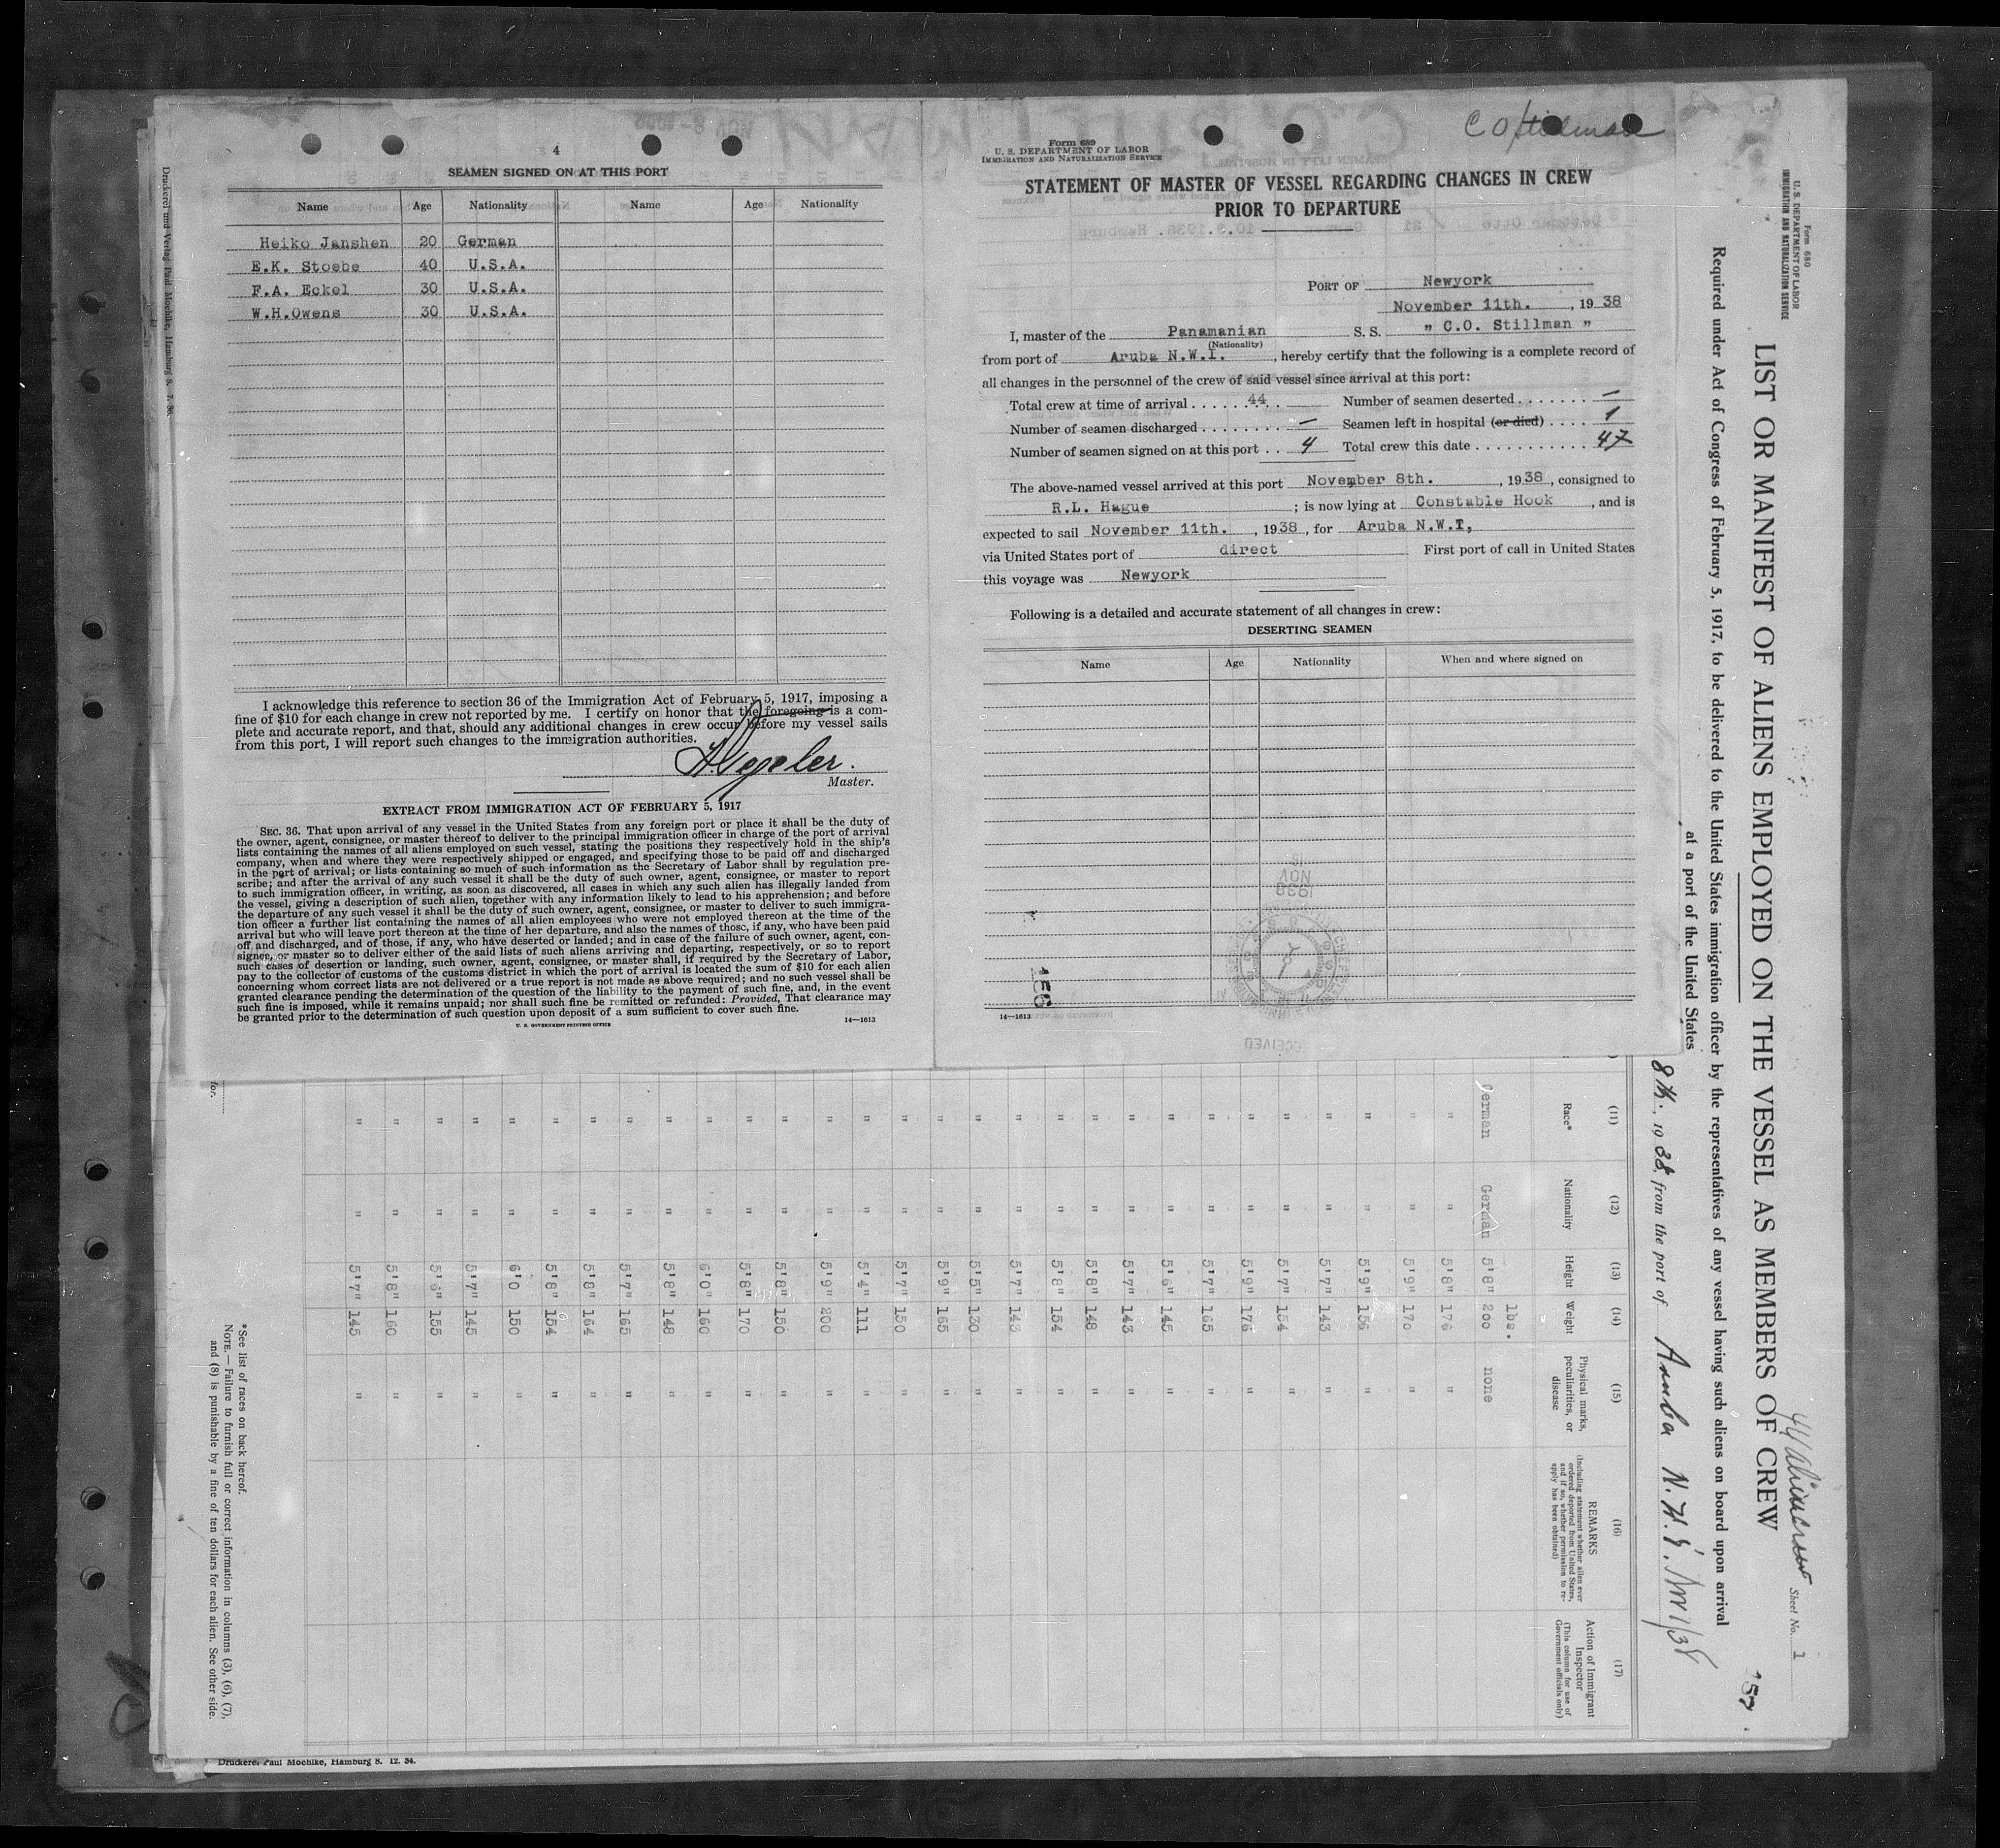 4
SEAMEN SIGNED ON AT THIS PORT
Name Age Nationality Name Age Nationality
Heiko Janshen 20 German
E.K. Stoebe 40 U.S.A.
F.A. Eckel 30 U.S.A.
W.H.Owens 30 U.S.A.
I acknowledge this reference to section 36 of the Immigration Act of February 5, 1917, imposing a
fine of $10 for each change in crew not reported by me. I certify on honor that the foregoing is a com-
plete and accurate report, and that, should any additional changes in crew occur before my vessel sails
from this port, I will report such changes to the immigration authorities.
Master.
EXTRACT FROM IMMIGRATION ACT OF FEBRUARY 5, 1917
SEC. 36. That upon arrival of any vessel in the United States from any foreign port or place it shall be the duty of
the owner, agent, consignee, or master thereof to deliver to the principal immigration officer in charge of the port of arrival
lists containing the names of all aliens employed on such vessel, stating the positions they respectively hold in the ship's
company, when and where they were respectively shipped or engaged, and specifying those to be paid off and discharged
in the port of arrival; or lists containing so much of such information as the Secretary of Labor shall by regulation pre-
scribe; and after the arrival of any such vessel it shall be the duty of such owner, agent, consignee, or master to report
to such immigration officer, in writing, as soon as discovered, all cases in which any such alien has illegally landed from
the vessel, giving a description of such alien, together with any information likely to lead to his apprehension; and before
the departure of any such vessel it shall be the duty of such owner, agent, consignee, or master to deliver to such immigra-
tion officer a further list containing the names of all alien employees who were not employed thereon at the time of the
arrival but who will leave port thereon at the time of her departure, and also the names of those, if any, who have been paid
off and discharged, and of those, if any, who have deserted or landed; and in case of the failure of such owner, agent, con-
signee, or master so to deliver either of the said lists of such aliens arriving and departing, respectively, or so to report
such cases of desertion or landing, such owner, agent, consignee, or master shall, if required by the Secretary of Labor,
pay to the collector of customs of the customs district in which the port of arrival is located the sum of $10 for each alien
concerning whom correct lists are not delivered or a true report is not made as above required; and no such vessel shall be
granted clearance pending the determination of the question of the liability to the payment of such fine, and, in the event
such fine is imposed, while it remains unpaid; nor shall such fine be remitted or refunded: Provided, That clearance may
be granted prior to the determination of such question upon deposit of a sum sufficient to cover such fine.
U. S. GOVERNMENT PRINTING OFFICE 14—1613
Druckerei und Verlag Paul Moehlke, Hamburg 8.
C O Stillman
Form 689
U. S. DEPARTMENT OF LABOR
IMMIGRATION AND NATURALIZATION SERVICE
STATEMENT OF MASTER OF VESSEL REGARDING CHANGES IN CREW
PRIOR TO DEPARTURE
PORT OF Newyork
November 11th. , 19 38
I, master of the Panamanian S. S. " C.O. Stillman "
(Nationality)
from port of Aruba N.W.I. , hereby certify that the following is a complete record of
all changes in the personnel of the crew of said vessel since arrival at this port:
Total crew at time of arrival 44 Number of seamen deserted —
Number of seamen discharged — Seamen left in hospital (or died) 1
Number of seamen signed on at this port 4 Total crew this date 47
The above-named vessel arrived at this port November 8th. , 1938 , consigned to
R.L. Hague ; is now lying at Constable Hook , and is
expected to sail November 11th. , 1938 , for Aruba N.W.I,
via United States port of direct First port of call in United States
this voyage was Newyork
Following is a detailed and accurate statement of all changes in crew:
DESERTING SEAMEN
Name Age Nationality When and where signed on
156
14—1613
Form 680
U. S. DEPARTMENT OF LABOR
IMMIGRATION AND NATURALIZATION SERVICE
Sheet No. 1
LIST OR MANIFEST OF ALIENS EMPLOYED ON THE VESSEL AS MEMBERS OF CREW
Required under Act of Congress of February 5, 1917, to be delivered to the United States immigration officer by the representatives of any vessel having such aliens on board upon arrival
at a port of the United States
8th. , 19 38, from the port of Aruba N.W.I.
(11) (12) (13) (14) (15) (16) (17)
Race* Nationality Height Weight Physical marks, peculiarities, or disease REMARKS (Including statement whether alien ever ordered deported from United States, and if so, whether permission to re-apply has been obtained) Action of Immigrant Inspector (This column for use of Government officials only)
lbs.
German German 5'8" 200 none
" " 5'8" 176 "
" " 5'9" 170 "
" " 5'9" 156 "
" " 5'7" 143 "
" " 5'7" 154 "
" " 5'9" 176 "
" " 5'7" 165 "
" " 5'6" 145 "
" " 5'7" 143 "
" " 5'8" 148 "
" " 5'8" 154 "
" " 5'7" 143 "
" " 5'5" 130 "
" " 5'9" 165 "
" " 5'7" 150 "
" " 5'4" 111 "
" " 5'9" 200 "
" " 5'8" 150 "
" " 5'8" 170 "
" " 6'0" 160 "
" " 5'8" 148 "
" " 5'7" 165 "
" " 5'8" 164 "
" " 5'8" 154 "
" " 6'0 150 "
" " 5'7" 145 "
" " 155 "
" " 5'8" 160 "
" " 5'7" 145 "
*See list of races on back hereof.
NOTE.—Failure to furnish full or correct information in columns (3), (6), (7),
and (8) is punishable by a fine of ten dollars for each alien. See other side.
Druckerei Paul Moehlke, Hamburg 8. 12. 34.